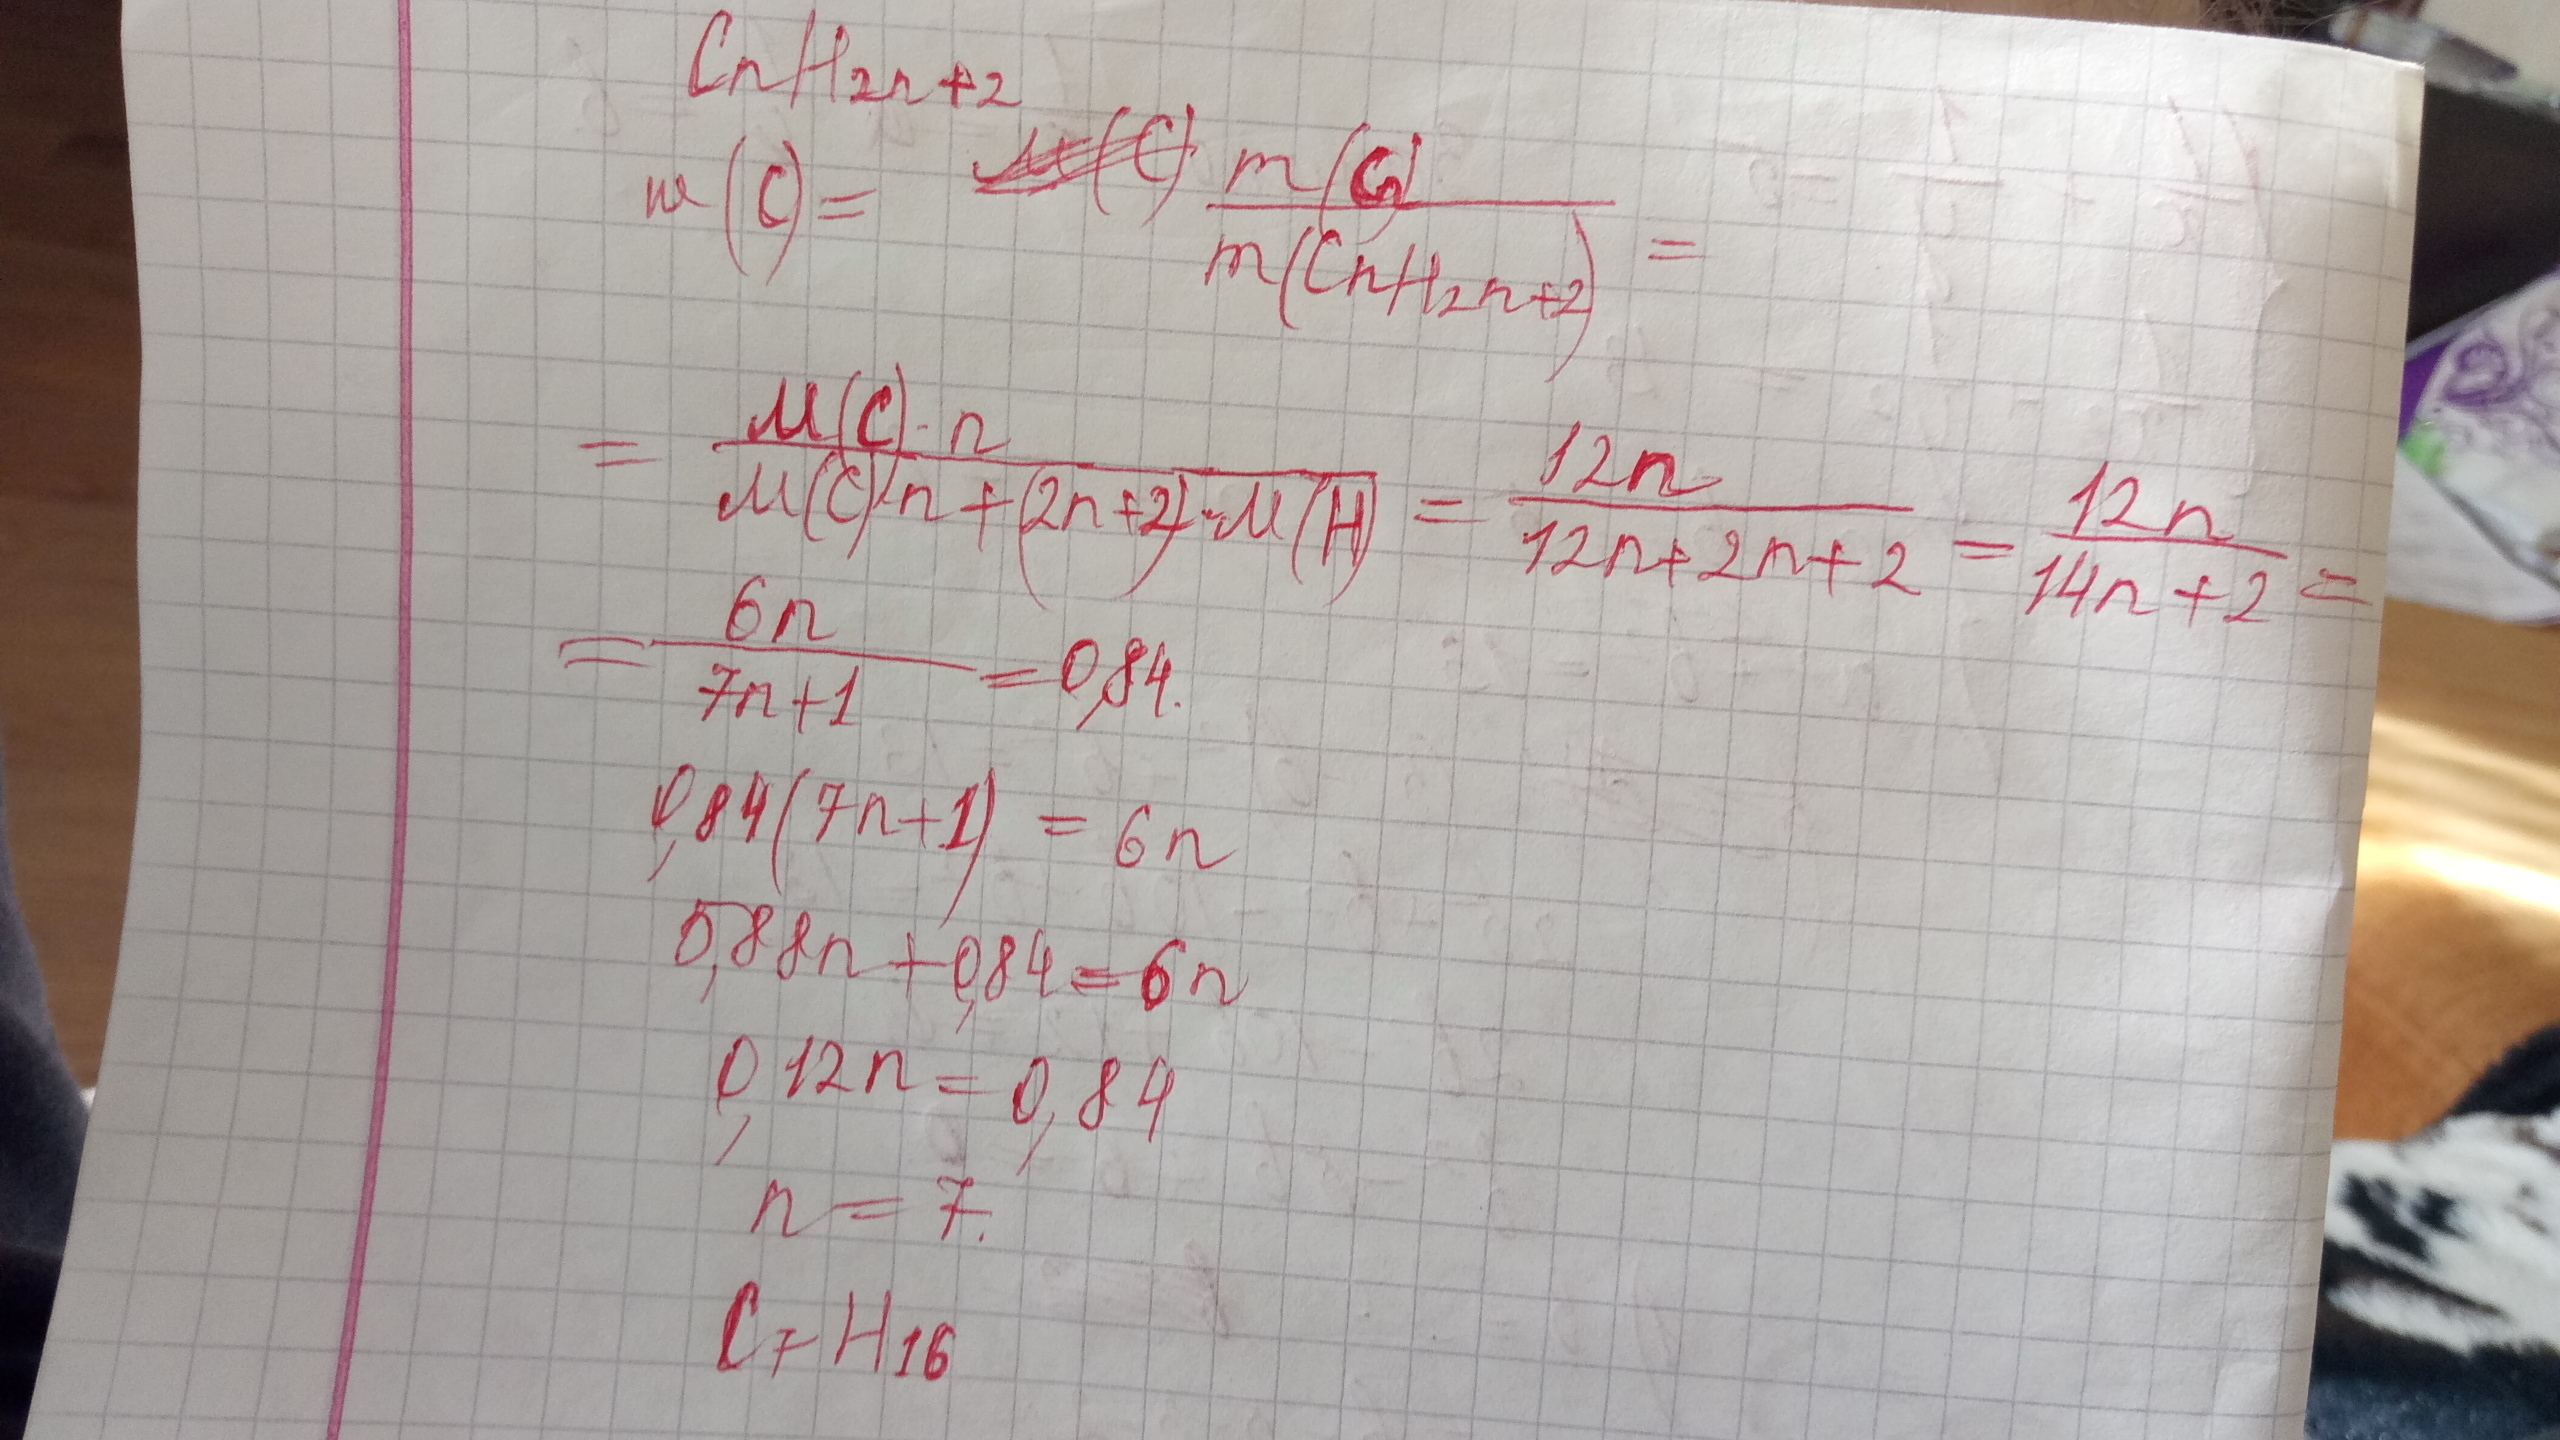 CnH2n+2
w(C) = M(C) m(C) / m(CnH2n+2) =
= M(C)·n / M(C)·n+(2n+2)·M(H) = 12n / 12n+2n+2 = 12n / 14n+2 =
= 6n / 7n+1 = 0,84.
0,84(7n+1) = 6n
5,88n+0,84=6n
0,12n=0,84
n=7.
C7H16